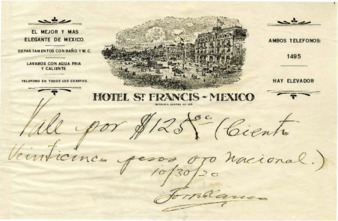 EL MEJOR Y MAS
ELEGANTE DE MEXICO.
DEPARTAMENTOS CON BAÑO Y W.C.
LAVABOS CON AGUA FRIA
Y CALIENTE
TELEFONO EN TODOS LOS CUARTOS.
AMBOS TELEFONOS:
1495
HAY ELEVADOR
HOTEL ST FRANCIS - MEXICO
Vale por $125.00 (Ciento
Veinticinco pesos oro nacional.)
10/30/20